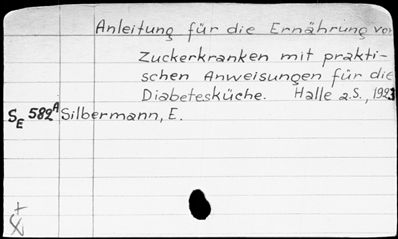 Anleitung für die Ernährung von
Zuckerkranken mit prakti-
schen Anweisungen für die
Diabetesküche. Halle a.S., 1923
S_E 582^A Silbermann, E.